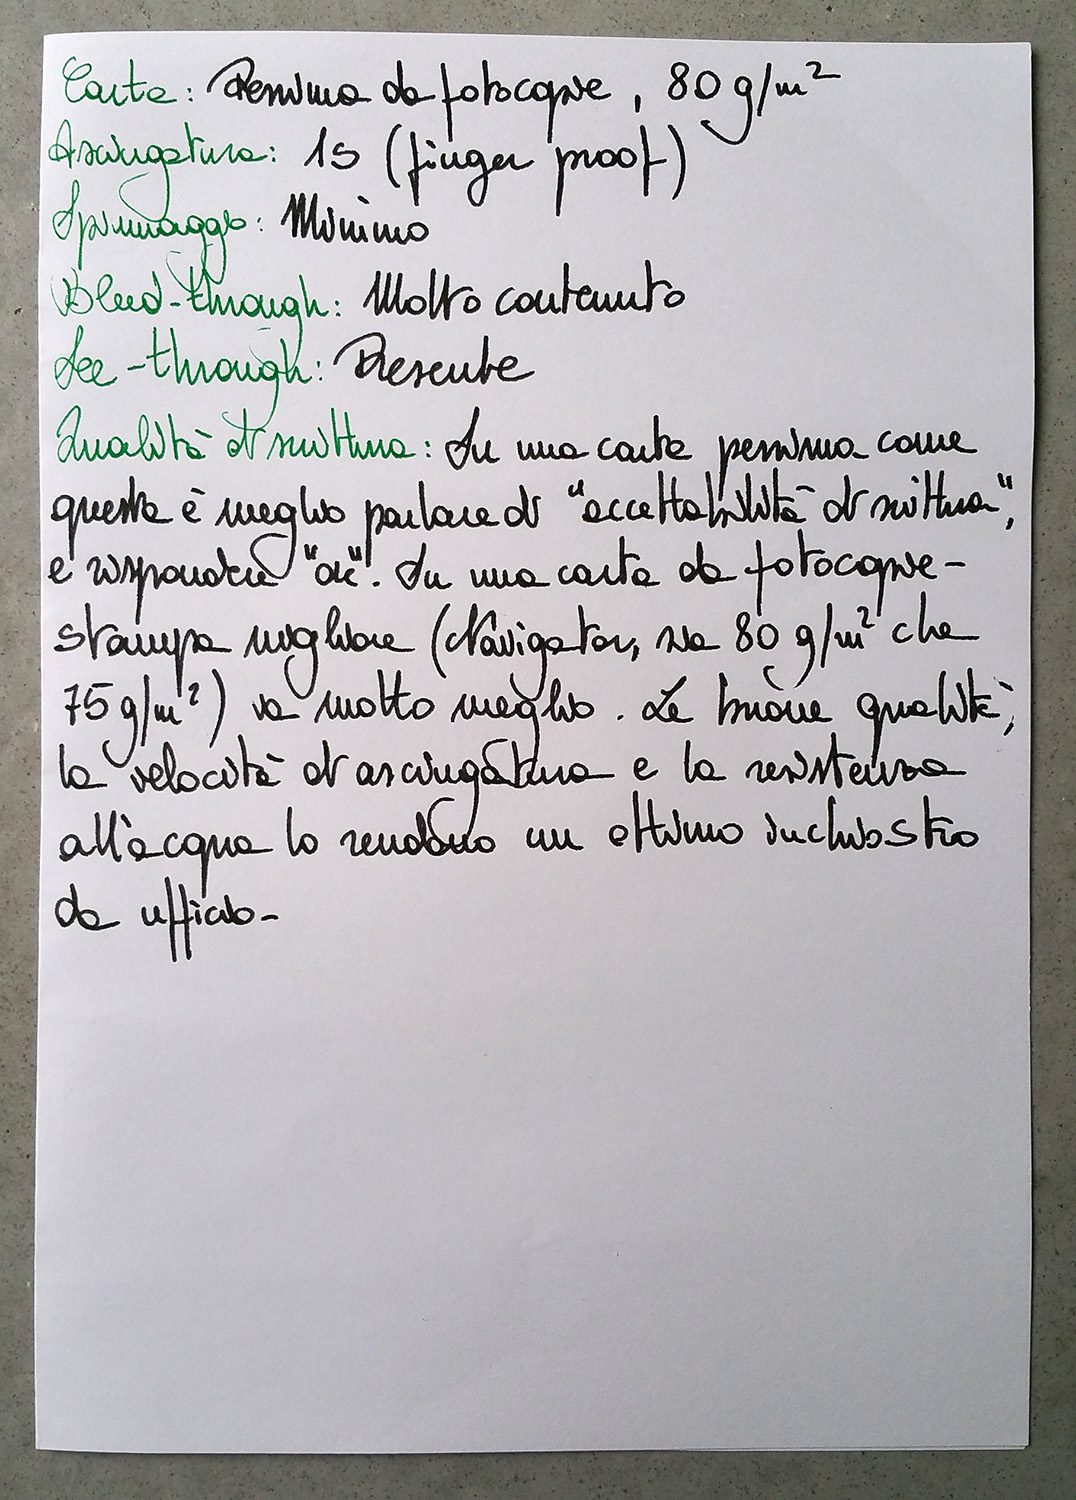 Carta: Pessima da fotocopie, 80 g/m²
Asciugatura: 1s (finger proof)
Spiumaggio: Minimo
Bleed-through: Molto contenuto
See-through: Presente
Qualità di scrittura: Su una carta pessima come
questa è meglio parlare di "accettabilità di scrittura",
e risponderei "ok". Su una carta da fotocopie-
stampa migliore (Navigator, sia 80 g/m² che
75 g/m²) va molto meglio. Le buone qualità,
la velocità di asciugatura e la resistenza
all'acqua lo rendono un ottimo inchiostro
da ufficio-